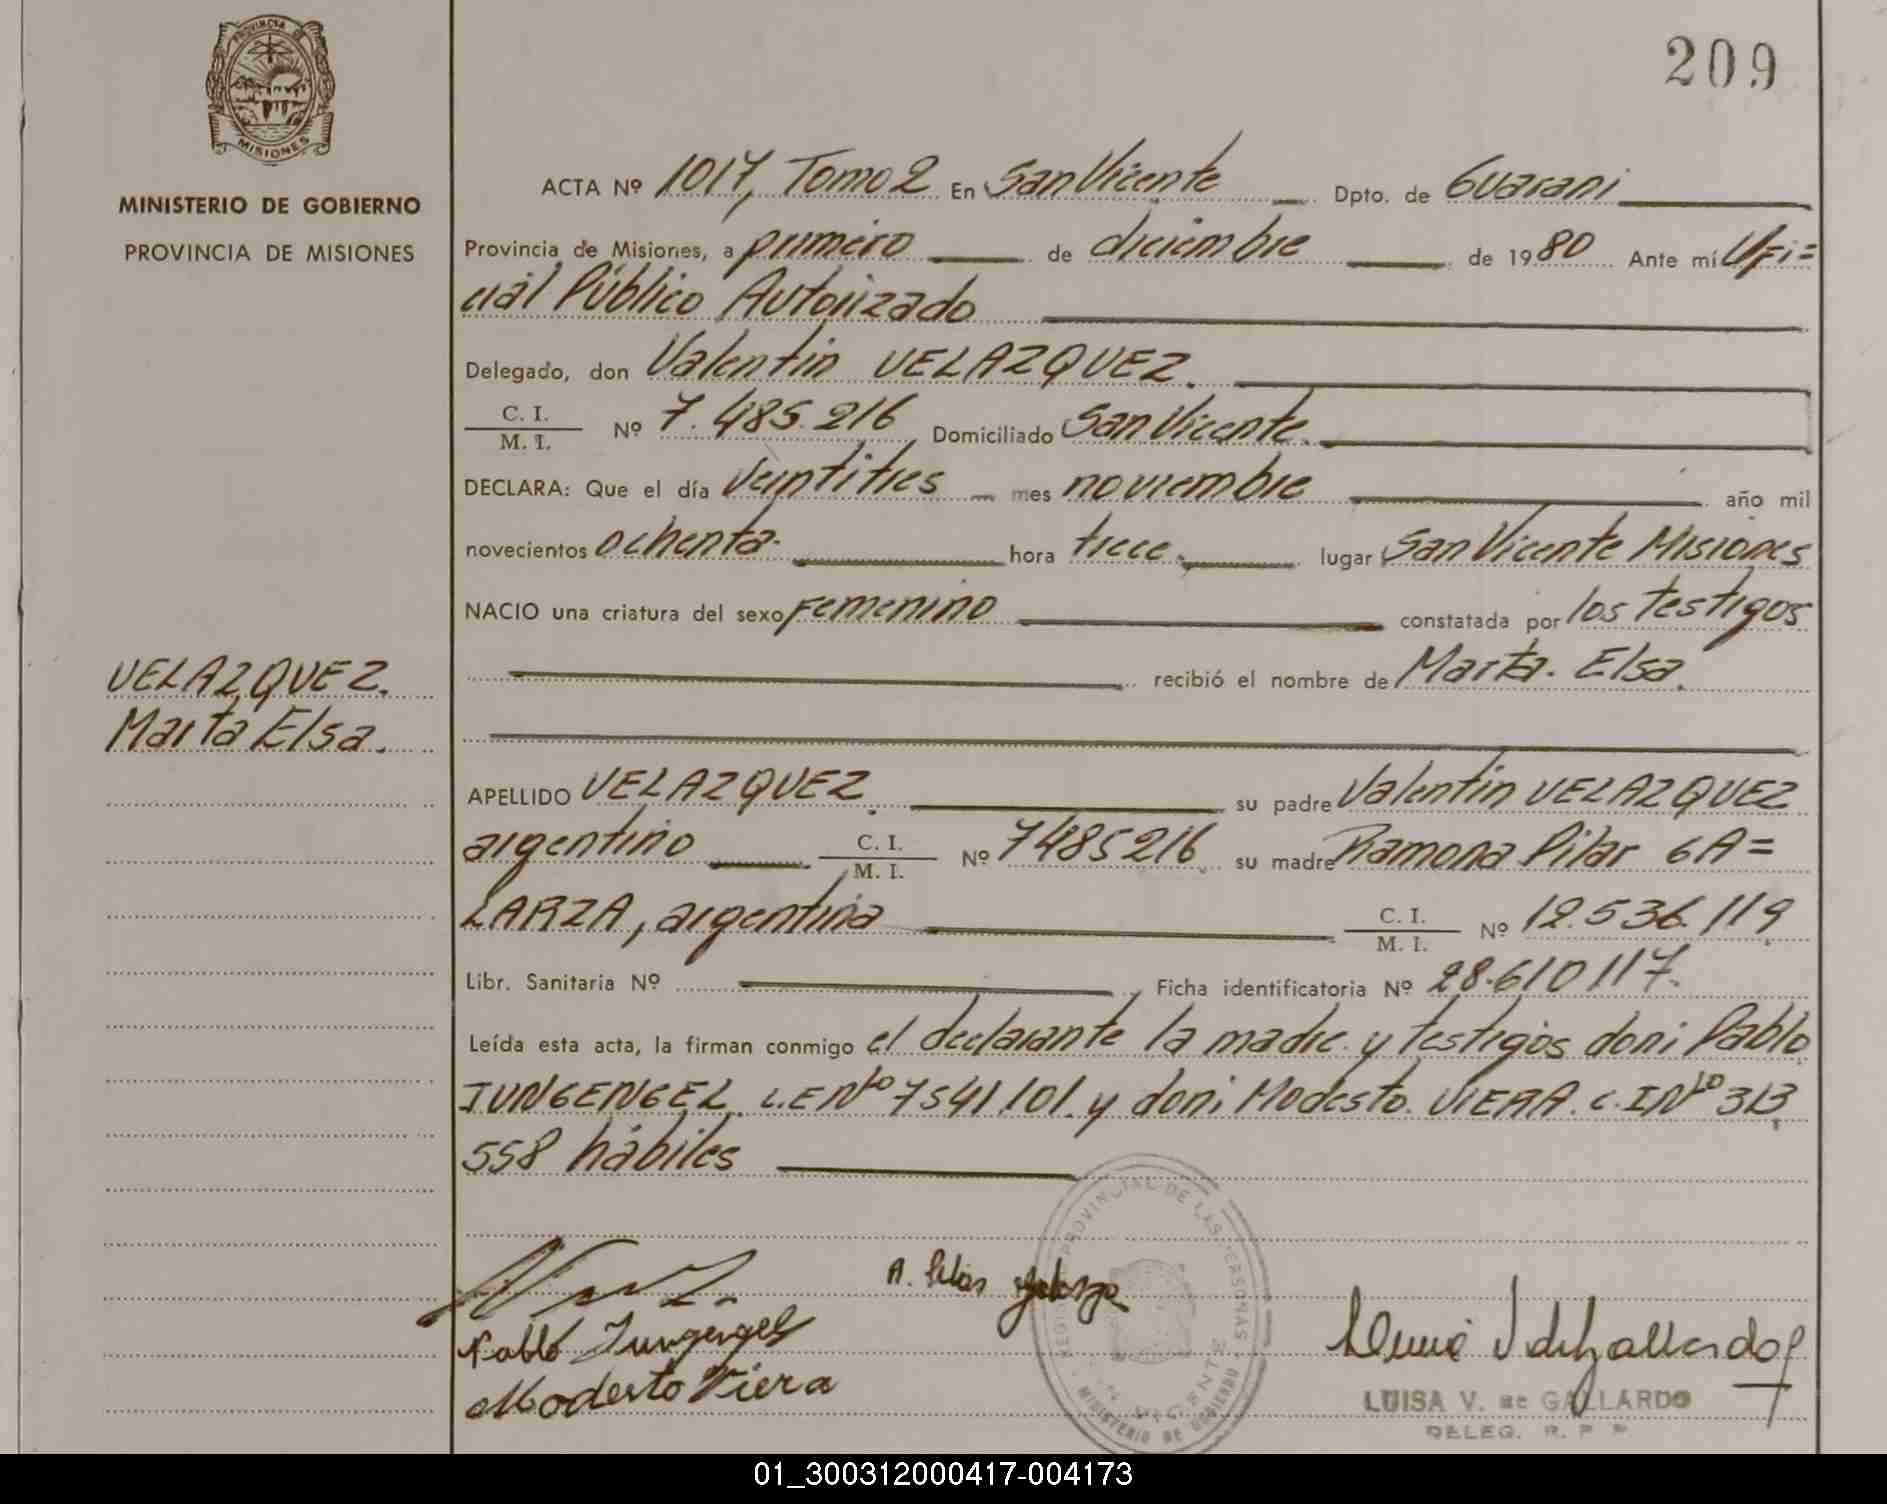 209
PROVINCIA DE
MISIONES
MINISTERIO DE GOBIERNO
PROVINCIA DE MISIONES
ACTA Nº 1017, Tomo 2 En San Vicente Dpto. de Guarani
Provincia de Misiones, a primero de diciembre de 1980 Ante mí Ofi=
cial Público Autorizado
Delegado, don Valentin VELAZQUEZ.
C. I.
M. I. Nº 7.485.216 Domiciliado San Vicente.
DECLARA: Que el día veintitres mes noviembre año mil
novecientos ochenta. hora trece. lugar San Vicente Misiones
NACIO una criatura del sexo femenino constatada por los testigos
VELAZQUEZ.
Marta Elsa.
recibió el nombre de Marta. Elsa.
APELLIDO VELAZQUEZ. su padre Valentin VELAZQUEZ
argentino C. I.
M. I. Nº 7485216 su madre Ramona Pilar GA=
LARZA, argentina C. I.
M. I. Nº 12.536.119
Libr. Sanitaria Nº Ficha identificatoria Nº 28.610117.
Leída esta acta, la firman conmigo el declarante la madre y testigos don: Pablo
JUNGENGEL. L.E Nº 7541.101. y don: Modesto. VIERA. C.I Nº 313
558 hábiles
A. Pilar Galarza
Pablo Jungengel
Modesto Viera
REGISTRO PROVINCIAL DE LAS PERSONAS
SAN VICENTE
MINISTERIO DE GOBIERNO
LUISA V. de GALLARDO
DELEG. R. P. P.
01_300312000417-004173